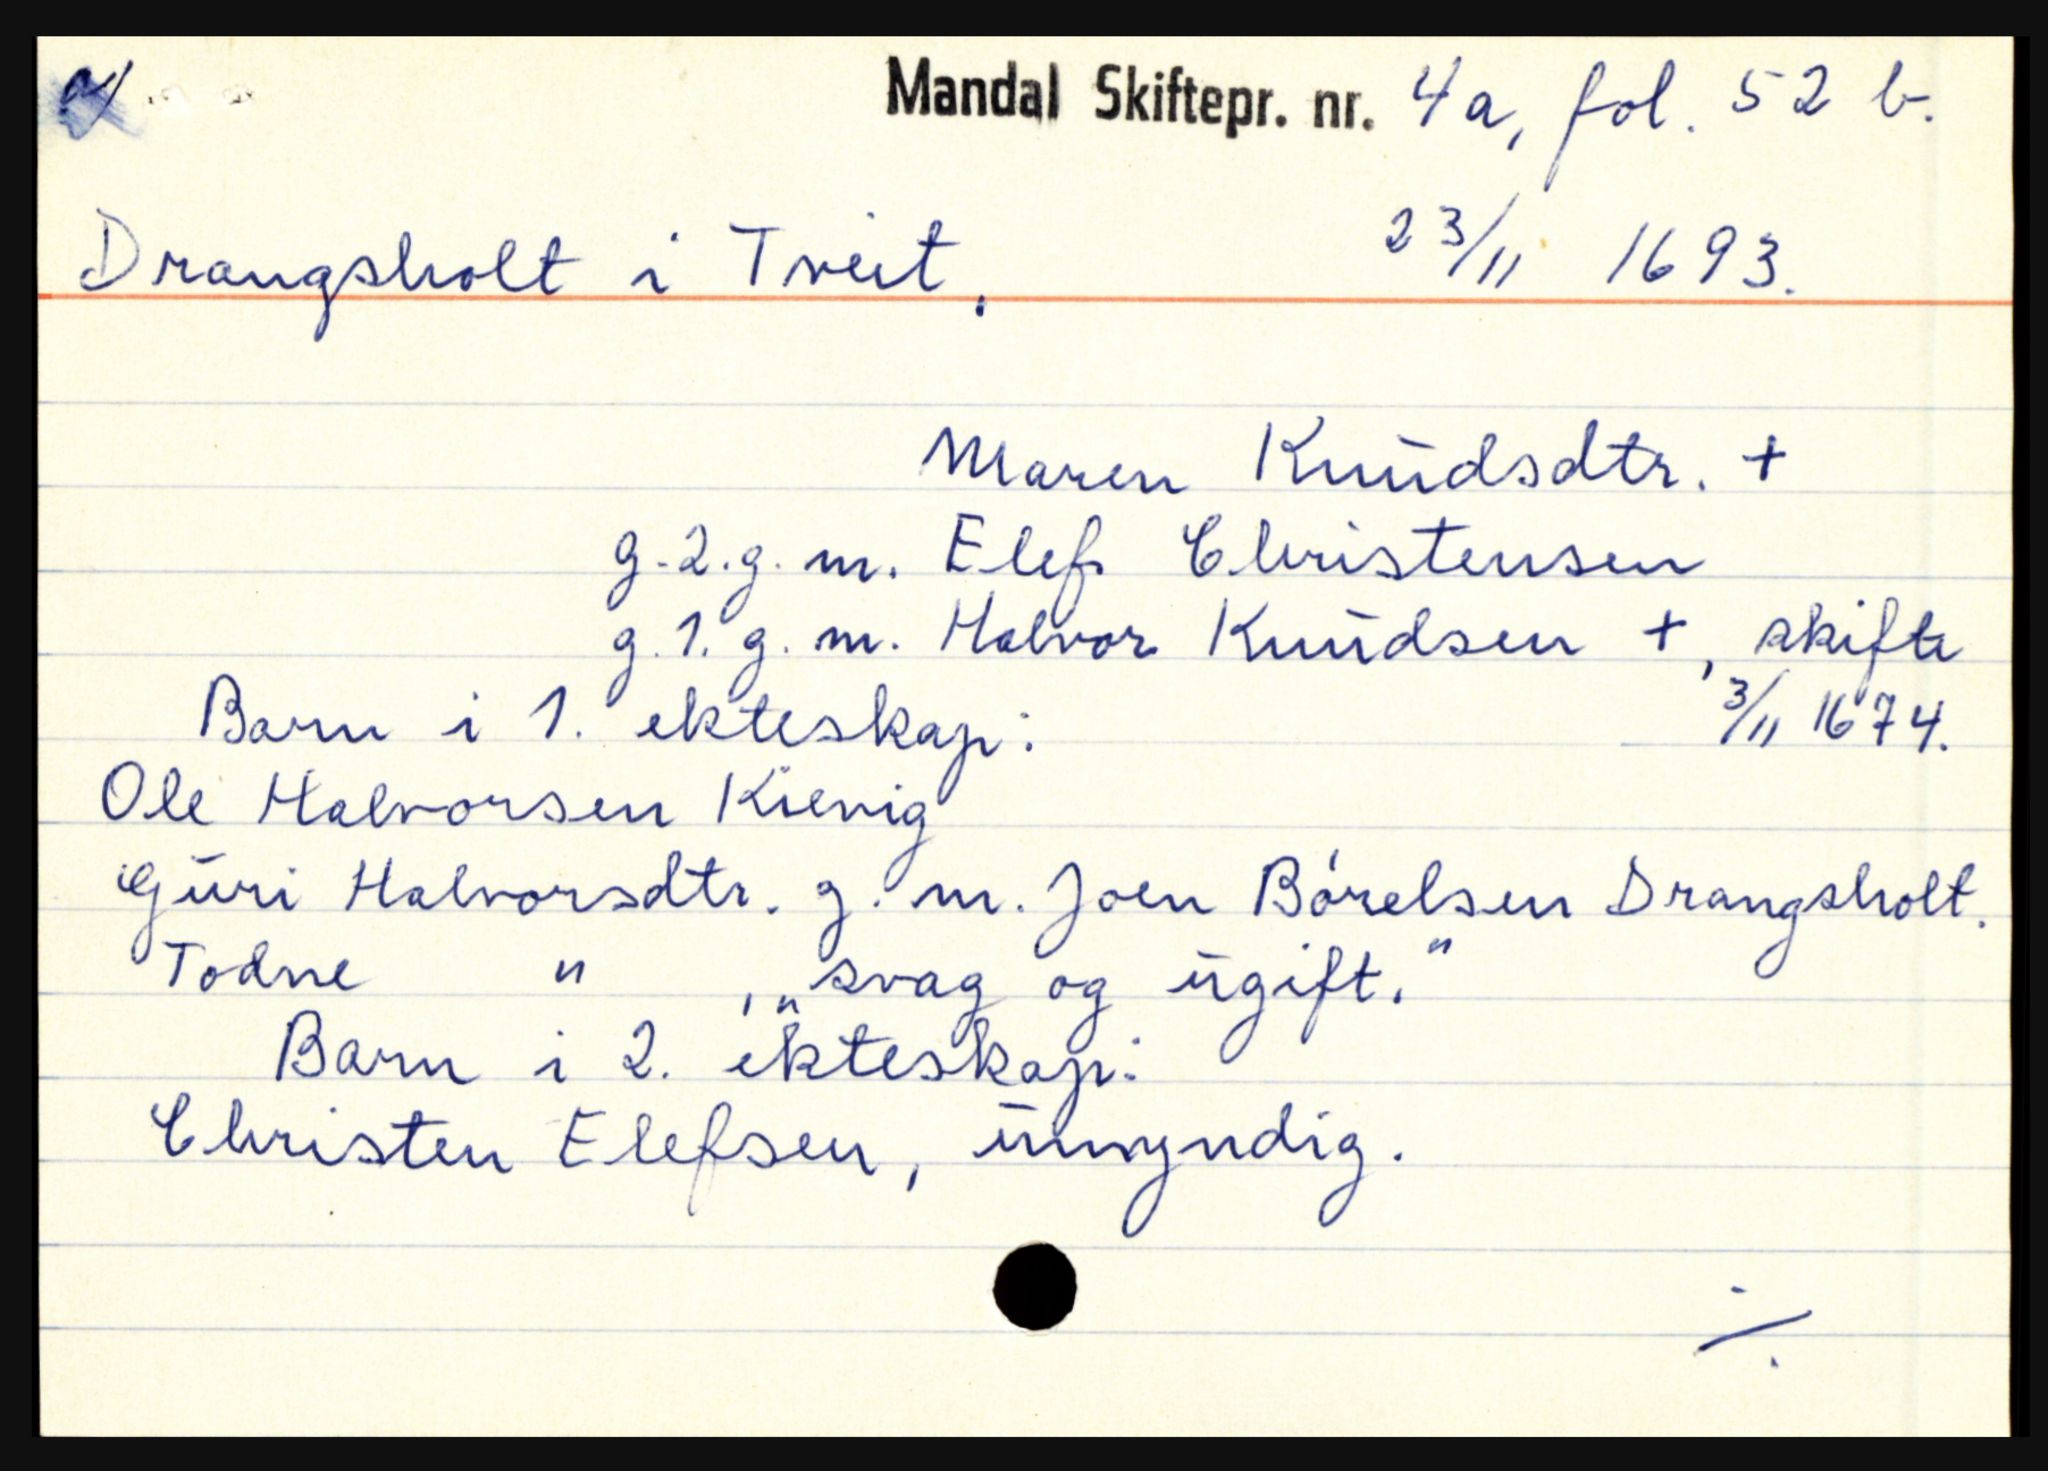 Mandal Skiftepr. nr. 4a, fol. 52 b.
Drangsholt i Tveit. 23/11 1693.
Maren Knudsdtr. +
g. 2. g. m. Elef Christensen
g. 1. g. m. Halvor Knudsen +, skifte
3/11 1674.
Barn i 1. ekteskap:
Ole Halvorsen Kievig
Guri Halvorsdtr. g. m. Joen Börelsen Drangsholt.
Todne " , „svag og ugift."
Barn i 2. ekteskap:
Christen Elefsen, umyndig.